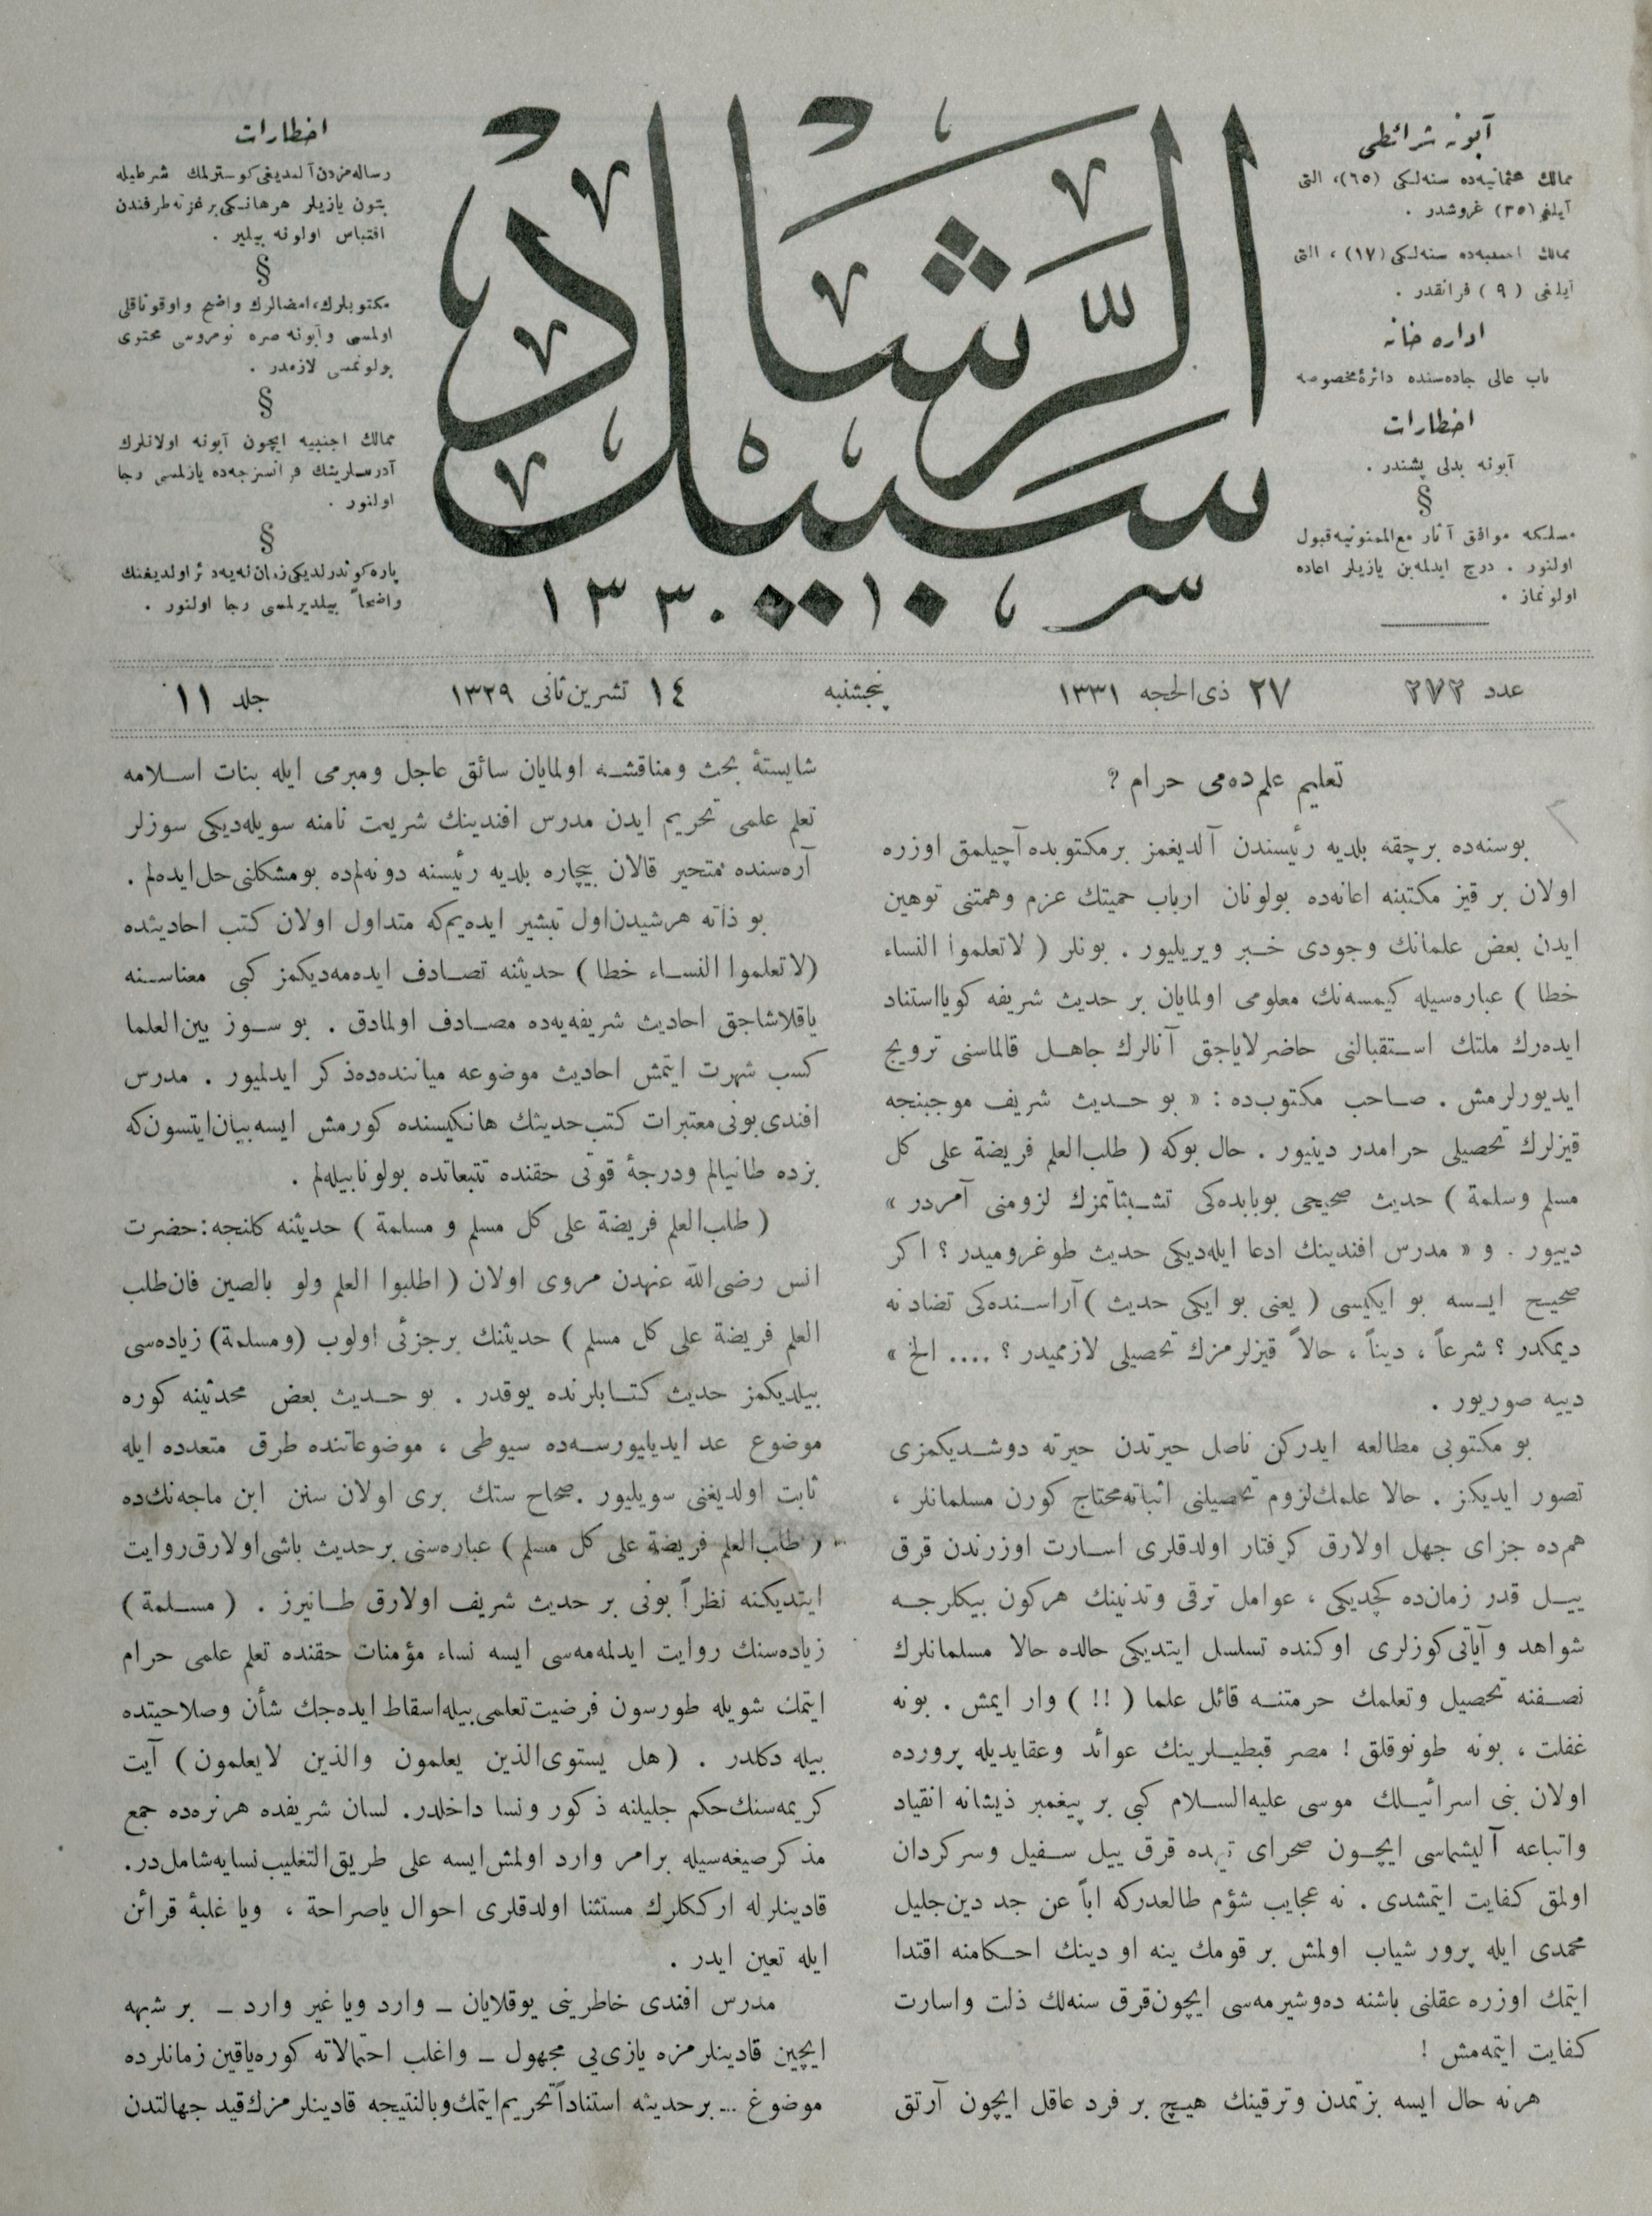 آبونه شرائطی
ممالك عثمانیه‌ده سنه‌لكی (٦٥)، التی
آیلغی (٣٥) غروشدر .
ممالك اجنبیه‌ده سنه‌لكی (١٧) ، التی
آیلغی ( ٩ ) فرانقدر .
اداره خانه
باب عالی جاده‌سنده دائرۀ مخصوصه
اخطارات
آبونه بدلی پشندر .
§
مسلكه موافق آثار مع‌الممنونیه قبول
اولنور . درج ایدلمه‌ین یازیلر اعاده
اولونماز .
سبیل الرشاد
سر ١٣٣٠
اخطارات
رساله‌مزدن آلندیغی كوسترلمك شرطیله
بتون یازیلر هر هانكی بر غزته طرفندن
اقتباس اولونه بیلیر .
§
مكتوبلرك، امضالرك واضح واوقوناقلی
اولمسی وآبونه صره نومروسی محتوی
بولونمسی لازمدر .
§
ممالك اجنبیه ایچون آبونه اولانلرك
آدرسلرینك فرانسزجه‌ده یازلمسی رجا
اولنور .
§
پاره كوندرلدیكی زمان نه‌یه‌دائر اولدیغنك
واضحاً بیلدیرلمسی رجا اولنور .
عدد ٢٧٢ ٢٧ ذی‌الحجه ١٣٣١ پنجشنبه ١٤ تشرین ثانی ١٣٢٩ جلد ١١
تعلیم علم ده‌می حرام ؟
بوسنه‌ده برچقه بلدیه رئیسندن آلدیغمز برمكتوبده آچیلمق اوزره
اولان بر قیز مكتبنه اعانه‌ده بولونان ارباب حمیتك عزم وهمتنی توهین
ایدن بعض علمانك وجودی خبر ویریلیور . بونلر ( لاتعلموا النساء
خطا ) عباره‌سیله كیمسه‌نك معلومی اولمایان بر حدیث شریفه كویااستناد
ایده‌رك ملتك استقبالنی حاضرلایاجق آنالرك جاهل قالماسنی ترویج
ایدیورلرمش . صاحب مكتوب‌ده : « بو حدیث شریف موجبنجه
قیزلرك تحصیلی حرامدر دینیور . حال بوكه ( طلب‌العلم فریضة علی كل
مسلم وسلمة ) حدیث صحیحی بوبابده‌كی تشبثاتمزك لزومنی آمردر »
دییور . و « مدرس افندینك ادعا ایله‌دیكی حدیث طوغرومیدر ؟ اكر
صحیح ایسه بو ایكیسی ( یعنی بو ایكی حدیث ) آراسنده‌كی تضاد نه
دیمكدر ؟ شرعاً ، دیناً ، حالاً قیزلرمزك تحصیلی لازممیدر ؟ .... الخ »
دییه صوریور .
بو مكتوبی مطالعه ایدركن ناصل حیرتدن حیرته دوشدیكمزی
تصور ایدیكز . حالا علمك‌لزوم تحصیلنی اثباته‌محتاج كورن مسلمانلر ،
هم‌ده جزای جهل اولارق كرفتار اولدقلری اسارت اوزرندن قرق
ییل قدر زمان‌ده كچدیكی ، عوامل ترقی وتدنینك هركون بیكلرجه
شواهد و آیاتی كوزلری اوكنده تسلسل ایتدیكی حالده حالا مسلمانلرك
نصفنه تحصیل وتعلمك حرمتنه قائل علما ( !! ) وار ایمش . بونه
غفلت ، بونه طونوقلق ! مصر قبطیلرینك عوائد وعقایدیله پرورده
اولان بنی اسرائیلك موسی علیه‌السلام كبی بر پیغمبر ذیشانه انقیاد
واتباعه آلیشماسی ایچون صحرای تیهده قرق ییل سفیل وسركردان
اولمق كفایت ایتمشدی . نه عجایب شؤم طالعدركه اباً عن جد دین‌جلیل
محمدی ایله پرور شیاب اولمش بر قومك ینه او دینك احكامنه اقتدا
ایتمك اوزره عقلنی باشنه ده‌وشیرمه‌سی ایچون‌قرق سنه‌لك ذلت واسارت
كفایت ایتمه‌مش !
هرنه حال ایسه بزتمدن وترقینك هیچ بر فرد عاقل ایچون آرتق
شایستۀ بحث ومناقشه اولمایان سائق عاجل ومبرمی ایله بنات اسلامه
تعلم علمی تحریم ایدن مدرس افندینك شریعت نامنه سویله‌دیكی سوزلر
آره‌سنده متحیر قالان بیچاره بلدیه رئیسنه دونه‌لم‌ده بومشكلنی حل‌ایده‌لم .
بو ذاته هرشیدن‌اول تبشیر ایده‌یم‌كه متداول اولان كتب احادیثده
(لاتعلموا النساء خطا ) حدیثنه تصادف ایده‌مه‌دیكمز كبی معناسنه
یاقلاشاجق احادیث شریفه‌یه‌ده مصادف اولمادق . بو سوز بین‌العلما
كسب شهرت ایتمش احادیث موضوعه میاننده‌ده‌ذكر ایدلمیور . مدرس
افندی‌بونی‌معتبرات كتب‌حدیثك هانكیسنده كورمش ایسه‌بیان‌ایتسون‌كه
بزده طانیالم ودرجۀ قوتی حقنده تتبعاتده بولونابیله‌لم .
( طلب‌العلم فریضة علی كل مسلم و مسلمة ) حدیثنه كلنجه : حضرت
انس رضی‌الله عنهدن مروی اولان ( اطلبوا العلم ولو بالصین فان‌طلب
العلم فریضة علی كل مسلم ) حدیثنك برجزئی اولوب (ومسلمة) زیاده‌سی
بیلدیكمز حدیث كتابلرنده یوقدر . بو حدیث بعض محدثینه كوره
موضوع عد ایدیلیورسه‌ده سیوطی ، موضوعاتنده طرق متعدده ایله
ثابت اولدیغنی سویلیور . صحاح ستك بری اولان سنن ابن ماجه‌نك‌ده
( طلب‌العلم فریضة علی كل مسلم ) عباره‌سنی برحدیث باشی‌اولارق‌روایت
ایتدیكنه نظراً بونی بر حدیث شریف اولارق طانیرز . ( مسلمة )
زیاده‌سنك روایت ایدلمه‌مه‌سی ایسه نساء مؤمنات حقنده تعلم علمی حرام
ایتمك شویله طورسون فرضیت‌تعلمی‌بیله‌اسقاط ایده‌جك شأن وصلاحیتده
بیله دكلدر . (هل یستوی‌الذین یعلمون والذین لایعلمون) آیت
كریمه‌سنك‌حكم جلیلنه ذكور ونسا داخلدر. لسان شریفده هرنره‌ده جمع
مذكرصیغه‌سیله برامر وارد اولمش‌ایسه علی طریق‌التغلیب‌نسایه‌شامل‌در.
قادینلرله ارككلرك مستثنا اولدقلری احوال یاصراحة ، ویا غلبۀ قرائن
ایله تعین ایدر .
مدرس افندی خاطرینی یوقلایان ــ وارد ویا غیر وارد ــ بر شبهه
ایچین قادینلرمزه یازی‌یی مجهول ــ واغلب احتمالاته كوره‌یاقین زمانلرده
موضوع ــ برحدیثه استناداً تحریم‌ایتمك‌وبالنتیجه قادینلرمزك‌قید جهالتدن